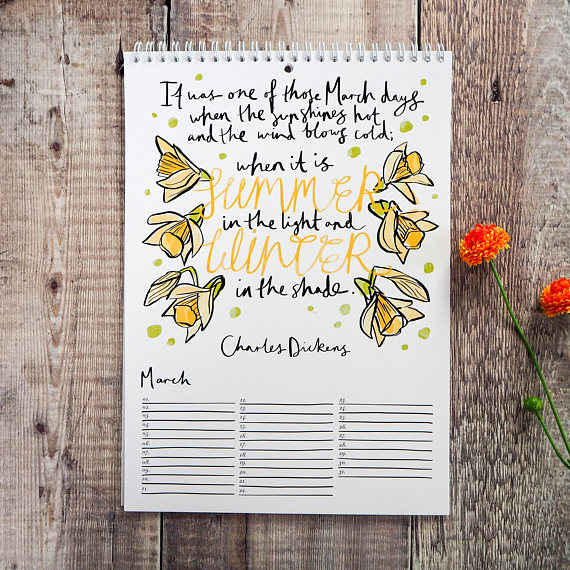 It was one of those March days
when the sun shines hot
and the wind blows cold;
when it is
SUMMER
in the light and
WINTER
in the shade.
Charles Dickens
March
01.
02.
03.
04.
05.
06.
07.
08.
09.
10.
11.
12.
13.
14.
15.
16.
17.
18.
19.
20.
21.
22.
23.
24.
25.
26.
27.
28.
29.
30.
31.